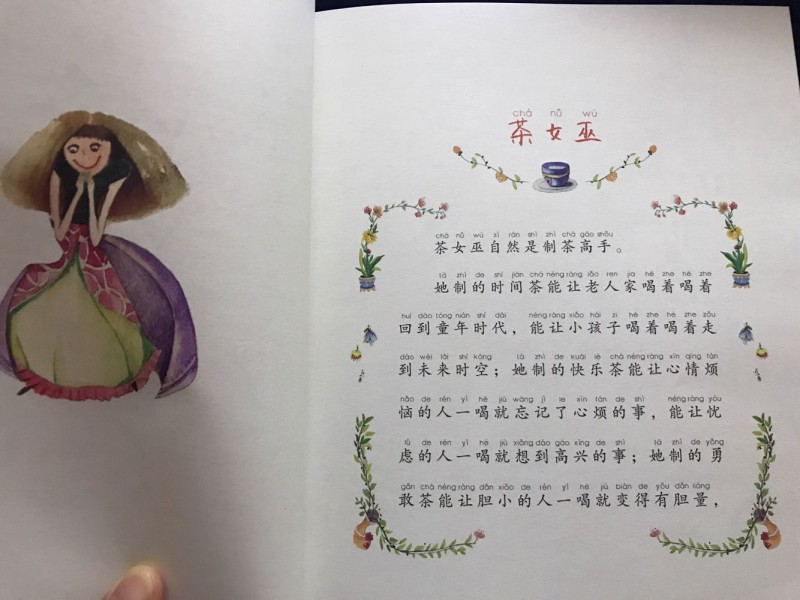 chá nǚ wū
茶女巫
chá nǚ wū zì rán shì zhì chá gāo shǒu
茶女巫自然是制茶高手。
tā zhì de shí jiān chá néng ràng lǎo ren jia hē zhe hē zhe
她制的时间茶能让老人家喝着喝着
huí dào tóng nián shí dài néng ràng xiǎo hái zi hē zhe hē zhe zǒu
回到童年时代，能让小孩子喝着喝着走
dào wèi lái shí kōng tā zhì de kuài lè chá néng ràng xīn qíng fán
到未来时空；她制的快乐茶能让心情烦
nǎo de rén yì hē jiù wàng jì le xīn fán de shì néng ràng yōu
恼的人一喝就忘记了心烦的事，能让忧
lǜ de rén yì hē jiù xiǎng dào gāo xìng de shì tā zhì de yǒng
虑的人一喝就想到高兴的事；她制的勇
gǎn chá néng ràng dǎn xiǎo de rén yì hē jiù biàn de yǒu dǎn liàng
敢茶能让胆小的人一喝就变得有胆量，